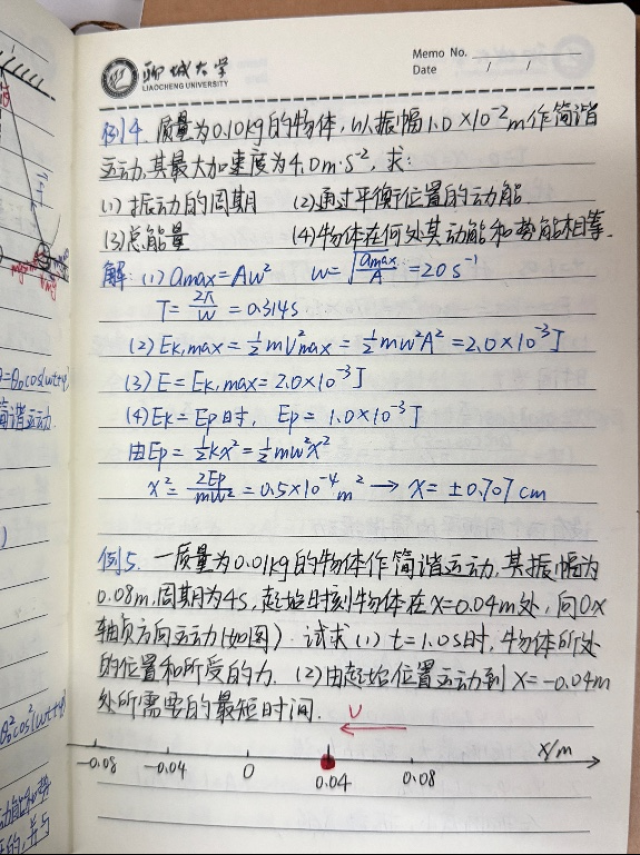 聊城大学
LIAOCHENG UNIVERSITY
Memo No.
Date / /
例4. 质量为0.10kg的物体,以振幅1.0×10⁻²m作简谐
运动,其最大加速度为4.0m·s⁻²,求:
(1)振动的周期 (2)通过平衡位置的动能
(3)总能量 (4)物体在何处其动能和势能相等.
解:(1) amax=Aω² ω=√(amax/A)=20s⁻¹
T=2π/ω=0.314s
(2)Ek,max=½mV²max=½mω²A²=2.0×10⁻³J
(3)E=Ek,max=2.0×10⁻³J
(4)Ek=Ep时, Ep=1.0×10⁻³J
由Ep=½kx²=½mω²x²
x²=2Ep/mω²=0.5×10⁻⁴m² → x=±0.707cm
例5. 一质量为0.01kg的物体作简谐运动,其振幅为
0.08m,周期为4s,起始时刻物体在x=0.04m处,向Ox
轴负方向运动(如图). 试求(1) t=1.0s时,物体所处
的位置和所受的力.(2)由起始位置运动到x=-0.04m
处所需要的最短时间.
V
x/m
-0.08 -0.04 0 0.04 0.08